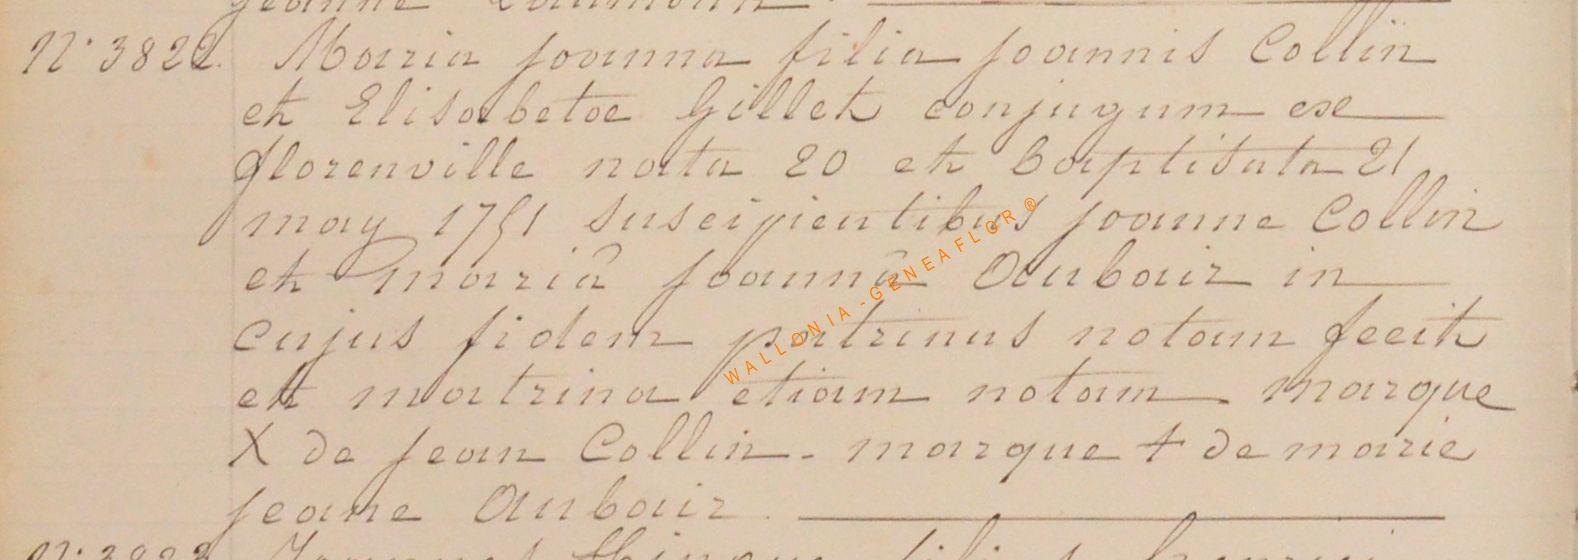 jeanne
N° 3822. Maria joanna filia joannis Collin
et Elisabetae Gillet conjugum ex
florenville nata 20 et baptisata 21
may 1751 suscipientibus joanne Collin
et mariâ joannâ Aubair in
cujus fidem patrinus notam fecit
et matrina etiam notam. marque
X de jean Collin - marque + de marie
jeane Aubair.
N° 3823
WALLONIA-GENEAFLOR®